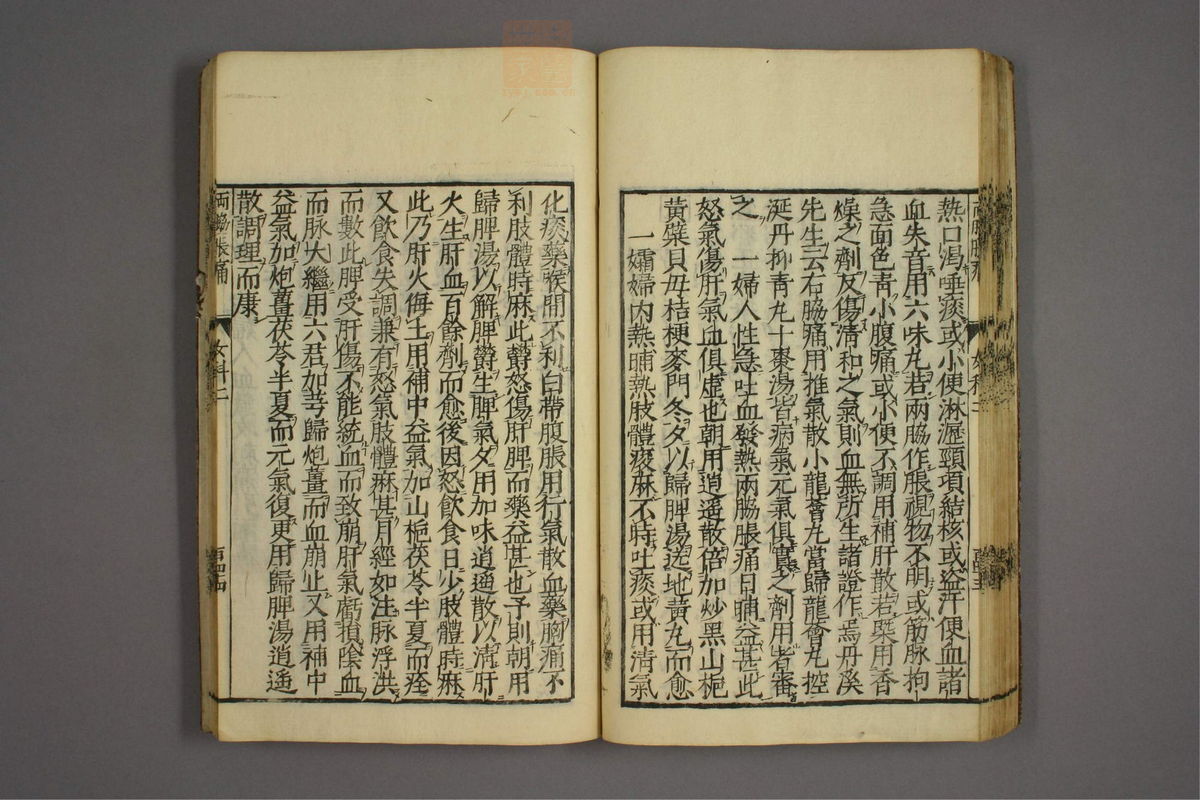 熱口渴唾痰或小便淋瀝頸項結核或盜汗便血諸
血失音用六味丸若兩脇作脹視物不明或筋脉拘
急面色靑小腹痛或小便不調用補肝散若槩用香
燥之劑反傷淸和之氣則血無所生諸證作焉丹溪
先生云右脇痛用推氣散小龍薈丸當歸龍薈丸控
涎丹抑靑丸十棗湯皆病氣元氣俱實之劑用者審
之一婦人性急吐血發熱兩脇脹痛日晡益甚此
怒氣傷肝氣血俱虛也朝用逍遥散倍加炒黑山梔
黃蘗貝母桔梗麥門冬夕以歸脾湯送地黃丸而愈
一孀婦内熱晡熱肢體痠麻不時吐痰或用淸氣
化痰藥喉間不利白帶腹脹用行氣散血藥胸痛不
利肢體時麻此欝怒傷肝脾而藥益甚也予則朝用
歸脾湯以解脾欝生脾氣夕用加味逍遥散以淸肝
火生肝血百餘劑而愈後因怒飮食日少肢體時麻
此乃肝火侮土用補中益氣加山梔茯苓半夏而痊
又飮食失調兼有怒氣肢體麻甚月經如注脉浮洪
而數此脾受肝傷不能統血而致崩肝氣虧損陰血
而脉大繼用六君加芎歸炮薑而血崩止又用補中
益氣加炮薑茯苓半夏而元氣復更用歸脾湯逍遥
散調理而康
両脇脹痛
女科二